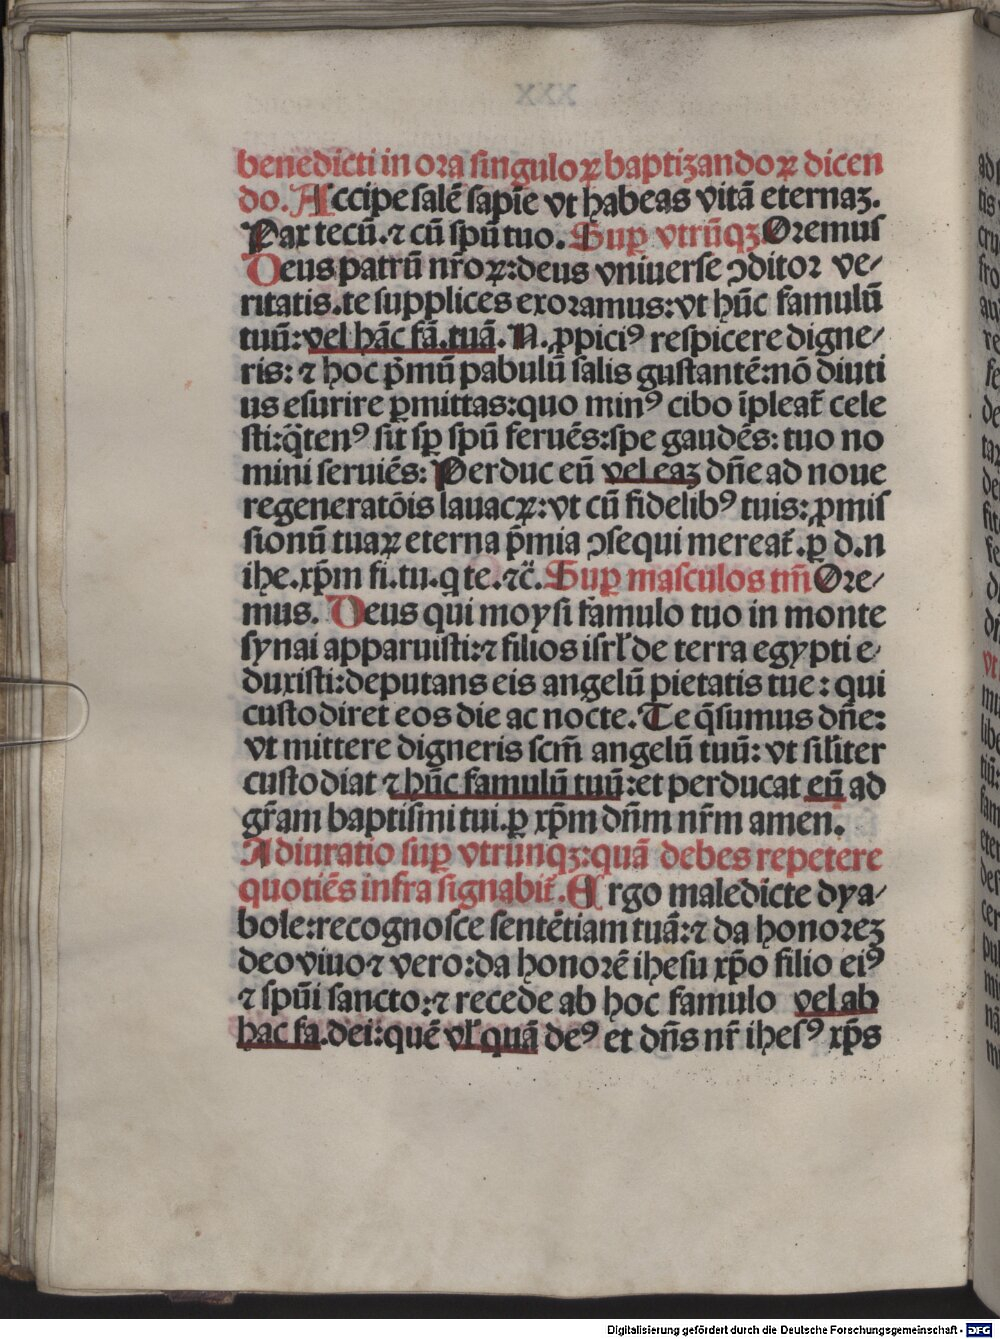 benedicti in ora singuloꝝ baptizandoꝝ dicen
do. Accipe salē sapīe vt habeas vitā eternaꝫ.
Pax tecū. ⁊ cū spū tuo. Suꝑ vtrūqꝫ Oremus
Deus patrū nr̄oꝝ: deus vniuerse ↄditor ve-
ritatis. te supplices exoramus: vt hūc famulū
tuū: vel hāc fā. tuā. N. ꝓpiciꝰ respicere digne-
ris: ⁊ hoc p̄mū pabulū salis gustantē: nō diuti
us esurire ꝑmittas: quo minꝰ cibo īpleat̄ cele
sti: q̈tenꝰ sit sꝑ spū feruēs: spe gaudēs: tuo no
mini seruiēs: Perduc eū vel eaꝫ dn̄e ad noue
regeneratōis lauacꝝ: vt cū fidelibꝰ tuis: ꝓmis
sionū tuaꝝ eterna p̄mia ↄsequi mereat̄. ꝑ d. n
ihe. xp̄m fi. tu. q te. ⁊c̄. Suꝑ masculos tm̄ Ore-
mus. Deus qui moysi famulo tuo in monte
synai apparuisti: ⁊ filios isrl̄ de terra egypti e-
duxisti: deputans eis angelū pietatis tue: qui
custodiret eos die ac nocte. Te q̄sumus dn̄e:
vt mittere digneris scm̄ angelū tuū: vt sil̄iter
custodiat ⁊ hūc famulū tuū: et perducat eū ad
gr̄am baptismi tui. ꝑ xp̄m dn̄m nr̄m amen.
Adiuratio suꝑ vtrunqꝫ: quā debes repetere
quotiēs infra signabit̄. Ergo maledicte dya-
bole: recognosce sentētiam tuā: ⁊ da honoreꝫ
deo viuo ⁊ vero: da honorē ihesu xp̄o filio eiꝰ
⁊ spūi sancto: ⁊ recede ab hoc famulo vel ab
hac fa. dei: quē vl̄ quā deꝰ et dn̄s nr̄ ihesꝰ xp̄s
Digitalisierung gefördert durch die Deutsche Forschungsgemeinschaft - DFG